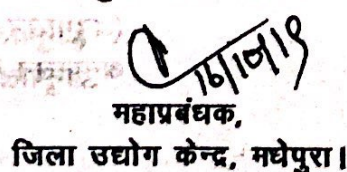 महाप्रबंधक,
जिला उद्योग केन्द्र, मधेपुरा।